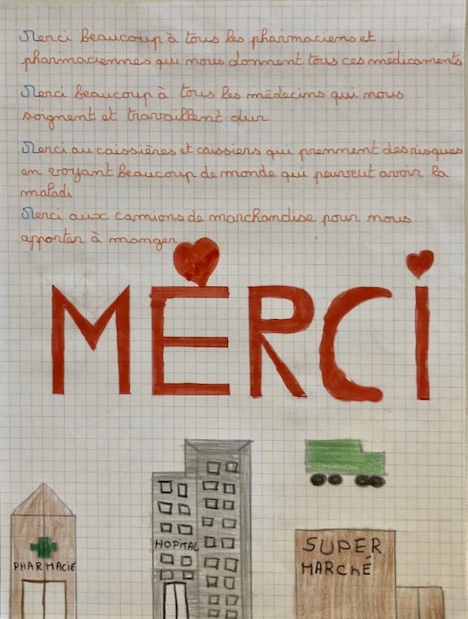 Merci beaucoup à tous les pharmaciens et
pharmaciennes qui nous donnent tous ces médicaments
Merci beaucoup à tous les médecins qui nous
soignent et travaillent dur
Merci au caissières et caissiers qui prennent des risques
en voyant beaucoup de monde qui peuvent avoir la
maladi
Merci aux camions de marchandise pour nous
apporter à manger
MERCI
PHARMACIE
HOPITAL
SUPER
MARChÉ